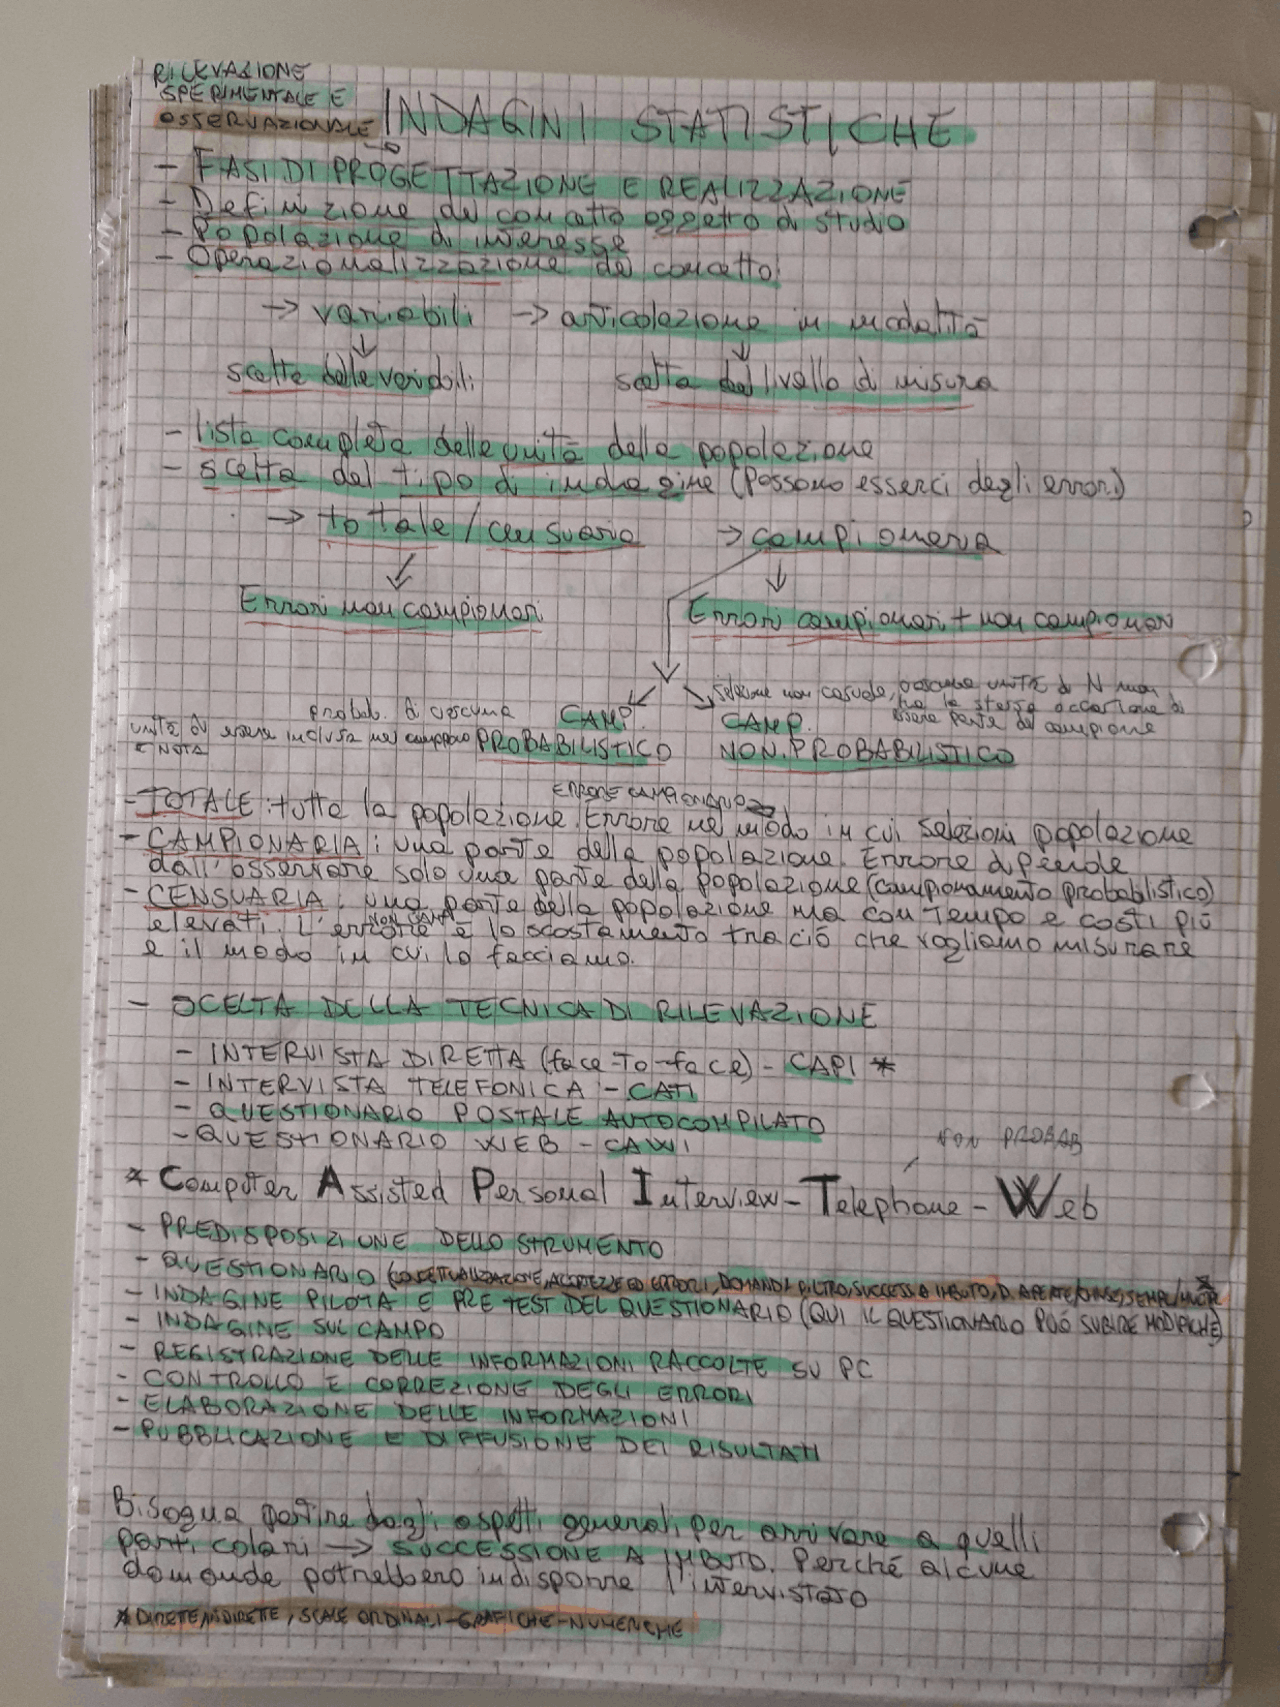 RILEVAZIONE
SPERIMENTALE E
OSSERVAZIONALE
INDAGINI STATISTICHE
- FASI DI PROGETTAZIONE E REALIZZAZIONE
- Definizione del concetto oggetto di studio
- Popolazione di interesse
- Operazionalizzazione del concetto
→ variabili → articolazione in modalità
scelta delle variabili scelta del livello di misura
- lista completa delle unità della popolazione
- scelta del tipo di indagine (Possono esserci degli errori)
→ totale / censuaria → campionaria
Errori non campionari Errori campionari + non campionari
Selezione non casuale, ciascuna unità di N non
ha la stessa occasione di
essere parte del campione
probab. di ciascuna CAMP. CAMP.
unità di essere inclusa nel campione PROBABILISTICO NON PROBABILISTICO
È NOTA
ERRORE CAMPIONARIO
- TOTALE: tutta la popolazione. Errore nel modo in cui selezioni popolazione
- CAMPIONARIA: una parte della popolazione. Errore dipende
dall'osservare solo una parte della popolazione (campionamento probabilistico)
- CENSUARIA: una parte della popolazione ma con tempo e costi più
elevati. L'errore NON CAMP è lo scostamento tra ciò che vogliamo misurare
e il modo in cui lo facciamo.
- SCELTA DELLA TECNICA DI RILEVAZIONE
- INTERVISTA DIRETTA (face-to-face) - CAPI *
- INTERVISTA TELEFONICA - CATI
- QUESTIONARIO POSTALE AUTOCOMPILATO
- QUESTIONARIO WEB - CAWI
NON PROBAB
* Computer Assisted Personal Interview - Telephone - Web
- PREDISPOSIZIONE DELLO STRUMENTO
- QUESTIONARIO (CONCETTUALIZZAZIONE, ED ERRORI, DOMANDA FILTRO, SUCCESS A IMBUTO, D. APERTE/CHIUSE, *
- INDAGINE PILOTA E PRE TEST DEL QUESTIONARIO (QUI IL QUESTIONARIO PUÒ SUBIRE MODIFICHE)
- INDAGINE SUL CAMPO
- REGISTRAZIONE DELLE INFORMAZIONI RACCOLTE SU PC
- CONTROLLO E CORREZIONE DEGLI ERRORI
- ELABORAZIONE DELLE INFORMAZIONI
- PUBBLICAZIONE E DIFFUSIONE DEI RISULTATI
Bisogna partire dagli aspetti generali per arrivare a quelli
particolari → SUCCESSIONE A IMBUTO. Perché alcune
domande potrebbero indisporre l'intervistato
* DIRETTE/INDIRETTE, SCALE ORDINALI - GRAFICHE - NUMERICHE